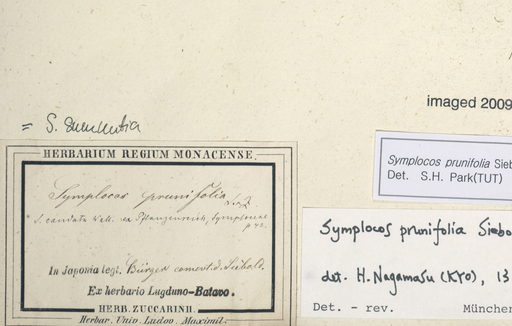 imaged 2009
= S. sumuntia
HERBARIUM REGIUM MONACENSE.
Symplocos prunifolia
S. caudata Wall. ex Pflanzenreich, Symplocac.
p 42.
In Japonia legi. Bürger comm. d. Siebold.
Ex herbario Lugduno-Batavo.
HERB. ZUCCARINII.
Herbar. Univ. Ludov. Maximil.
Symplocos prunifolia Sieb
Det. S.H. Park(TUT)
Symplocos prunifolia Siebo
det. H. Nagamasu (KYO), 13
Det. - rev. Münche